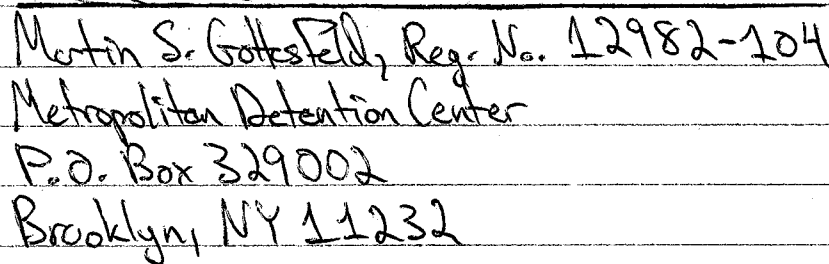 Martin S. Gottesfeld, Reg. No. 12982-104
Metropolitan Detention Center
P.O. Box 329002
Brooklyn, NY 11232